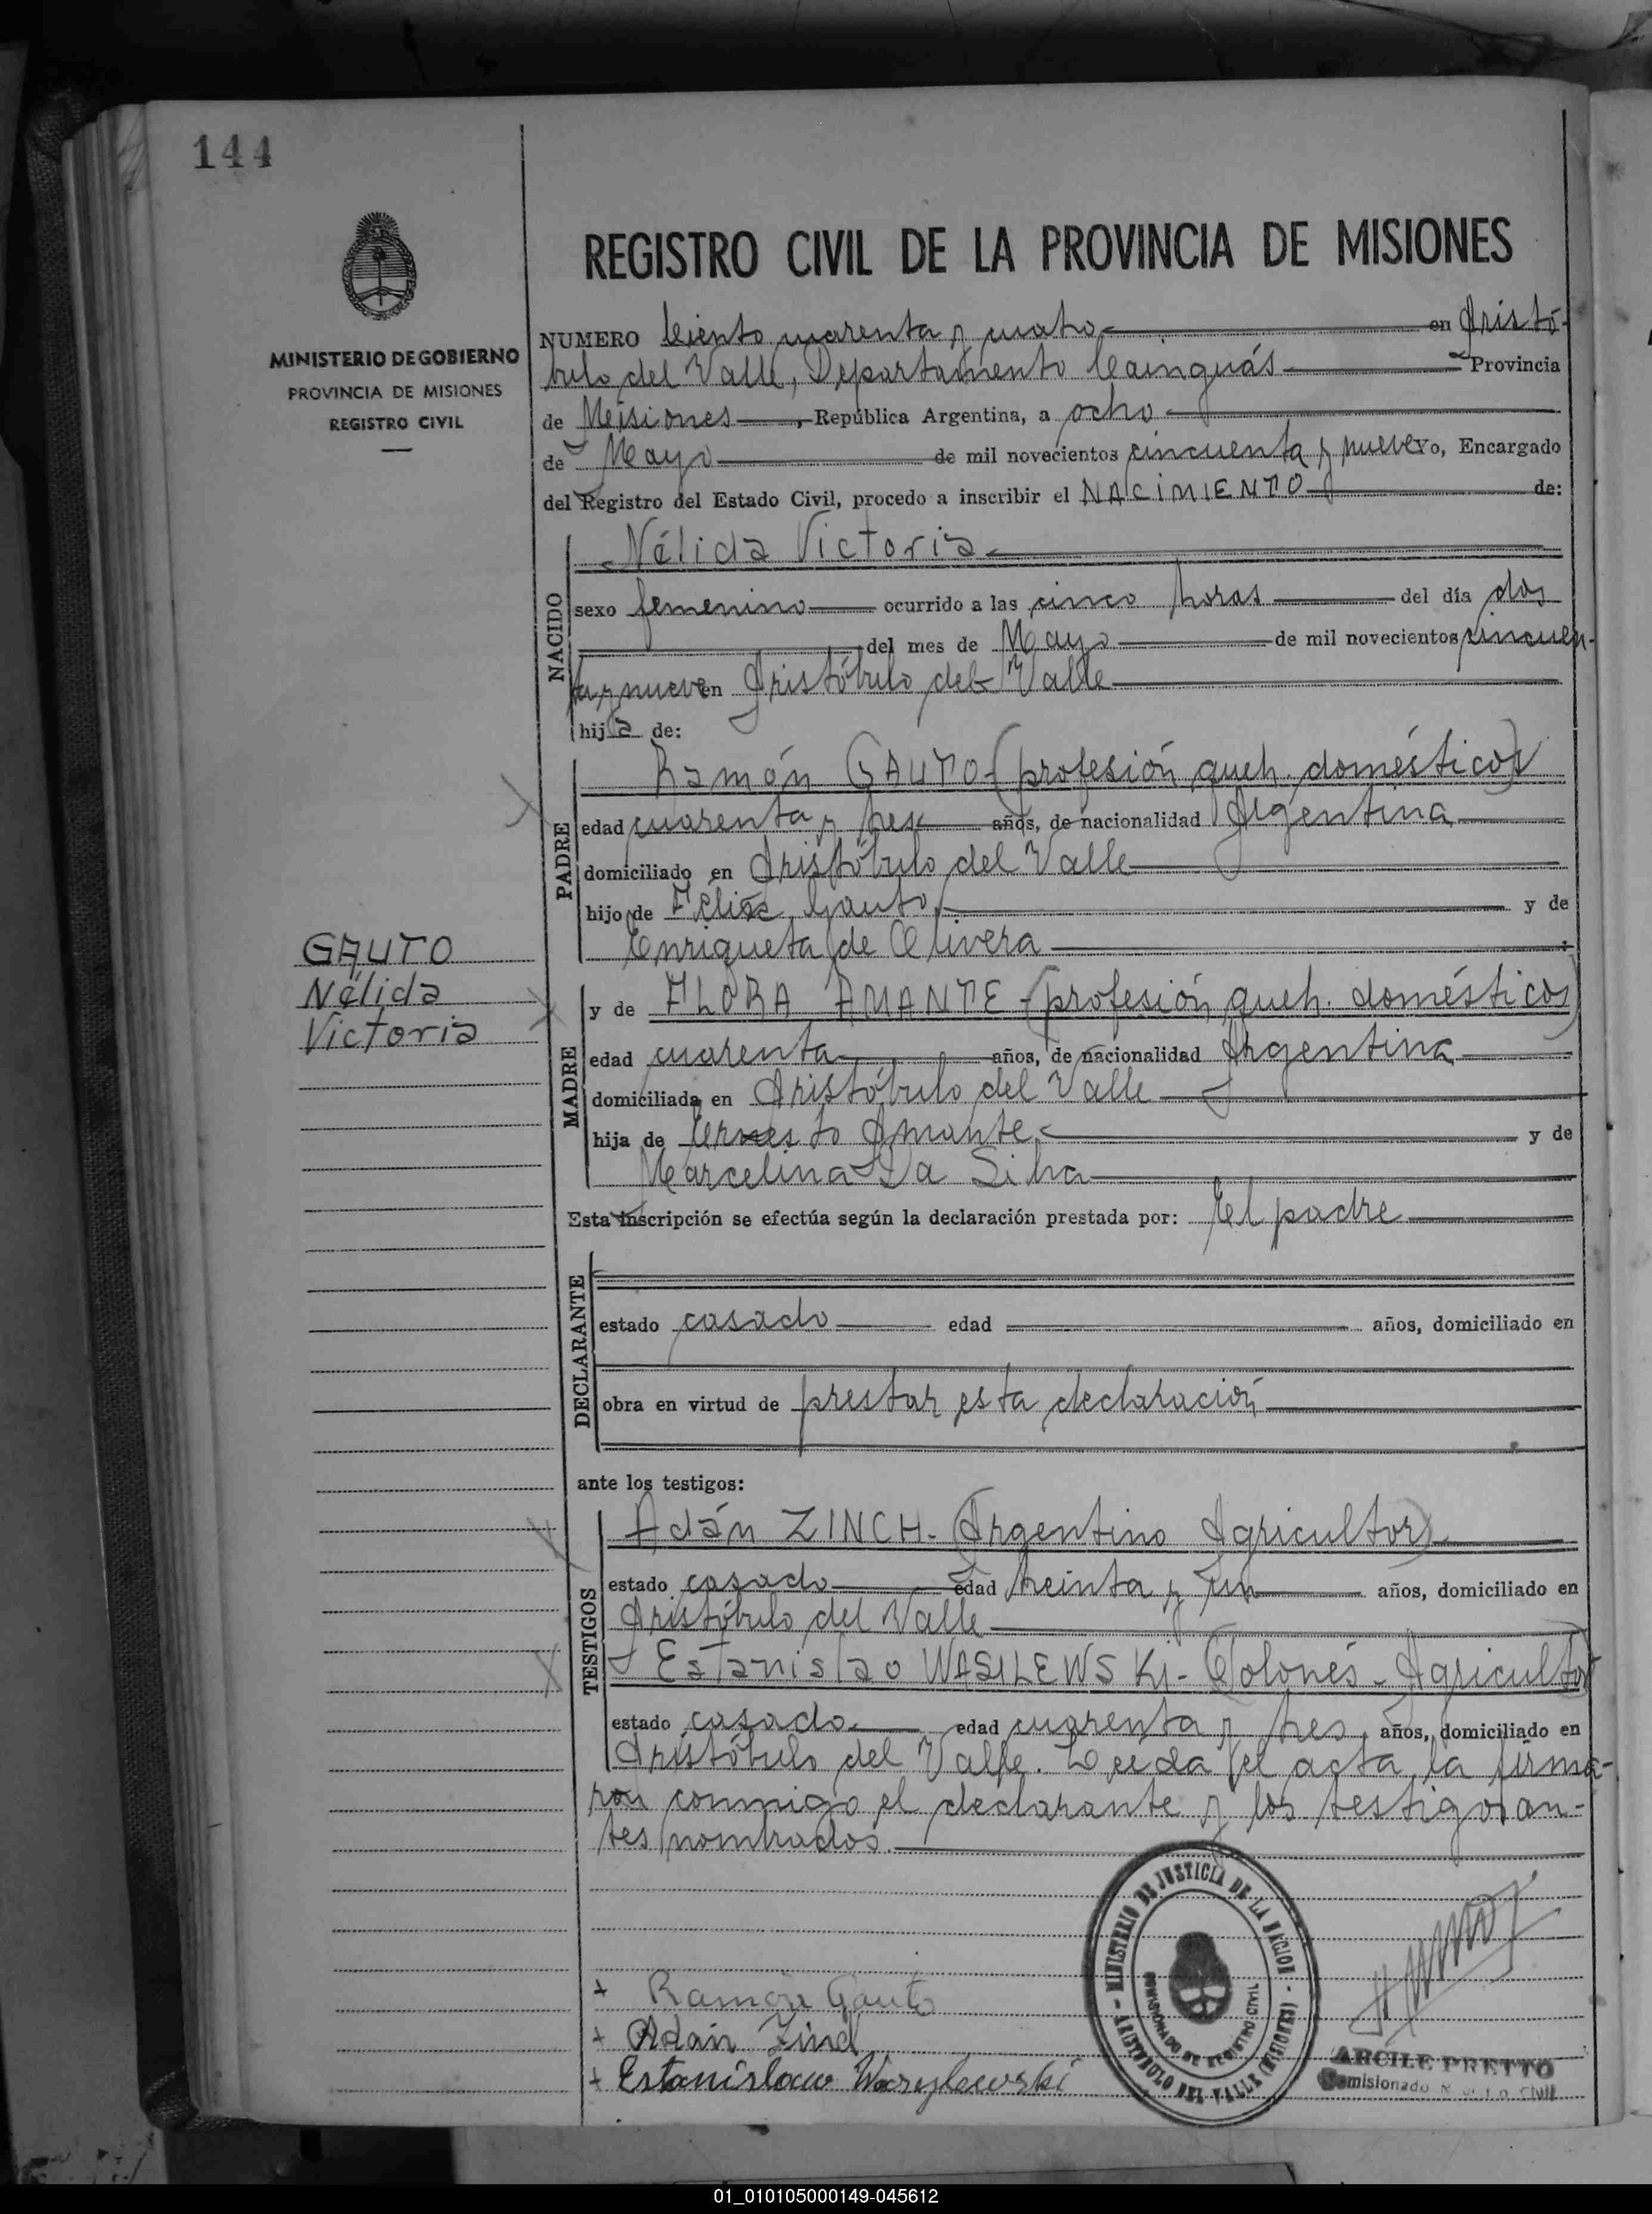 144
MINISTERIO DE GOBIERNO
PROVINCIA DE MISIONES
REGISTRO CIVIL
REGISTRO CIVIL DE LA PROVINCIA DE MISIONES
NUMERO Ciento cuarenta y cuatro en Aristó-
bulo del Valle, Departamento Cainguás Provincia
de Misiones, República Argentina, a ocho
de Mayo de mil novecientos cincuenta y nueve yo, Encargado
del Registro del Estado Civil, procedo a inscribir el NACIMIENTO de:
NACIDO
Nélida Victoria
sexo femenino ocurrido a las cinco horas del día dos
del mes de Mayo de mil novecientos cincuen-
ta y nueve en Aristóbulo del Valle
hija de:
PADRE
Ramón GAUTO (profesión queh. domésticos)
edad cuarenta y tres años, de nacionalidad Argentina
domiciliado en Aristóbulo del Valle
hijo de Gauto y de
Enriqueta de Olivera
GAUTO
Nélida
Victoria
MADRE
y de FLORA AMANTE (profesión queh. domésticos)
edad cuarenta años, de nacionalidad Argentina
domiciliada en Aristóbulo del Valle
hija de Ernesto Amante y de
Marcelina Da Silva
Esta inscripción se efectúa según la declaración prestada por: El padre
DECLARANTE
estado casado edad años, domiciliado en
obra en virtud de prestar esta declaración
ante los testigos:
TESTIGOS
Adán ZINCH. (Argentino Agricultor)
estado casado edad treinta y un años, domiciliado en
Aristóbulo del Valle
Estanislao WASILEWSKI - (Polonés - Agricultor)
estado casado edad cuarenta y tres años, domiciliado en
Aristóbulo del Valle. Leída el acta, la firma-
ron conmigo el declarante y los testigos an-
tes nombrados.
MINISTERIO DE JUSTICIA DE LA NACION
COMISIONADO DE REGISTRO CIVIL
ARISTOBULO DEL VALLE (MISIONES)
+ Ramón Gauto
+ Adan
+ Estanisłaus
ARCILE PRETTO
Comisionado
01_010105000149-045612